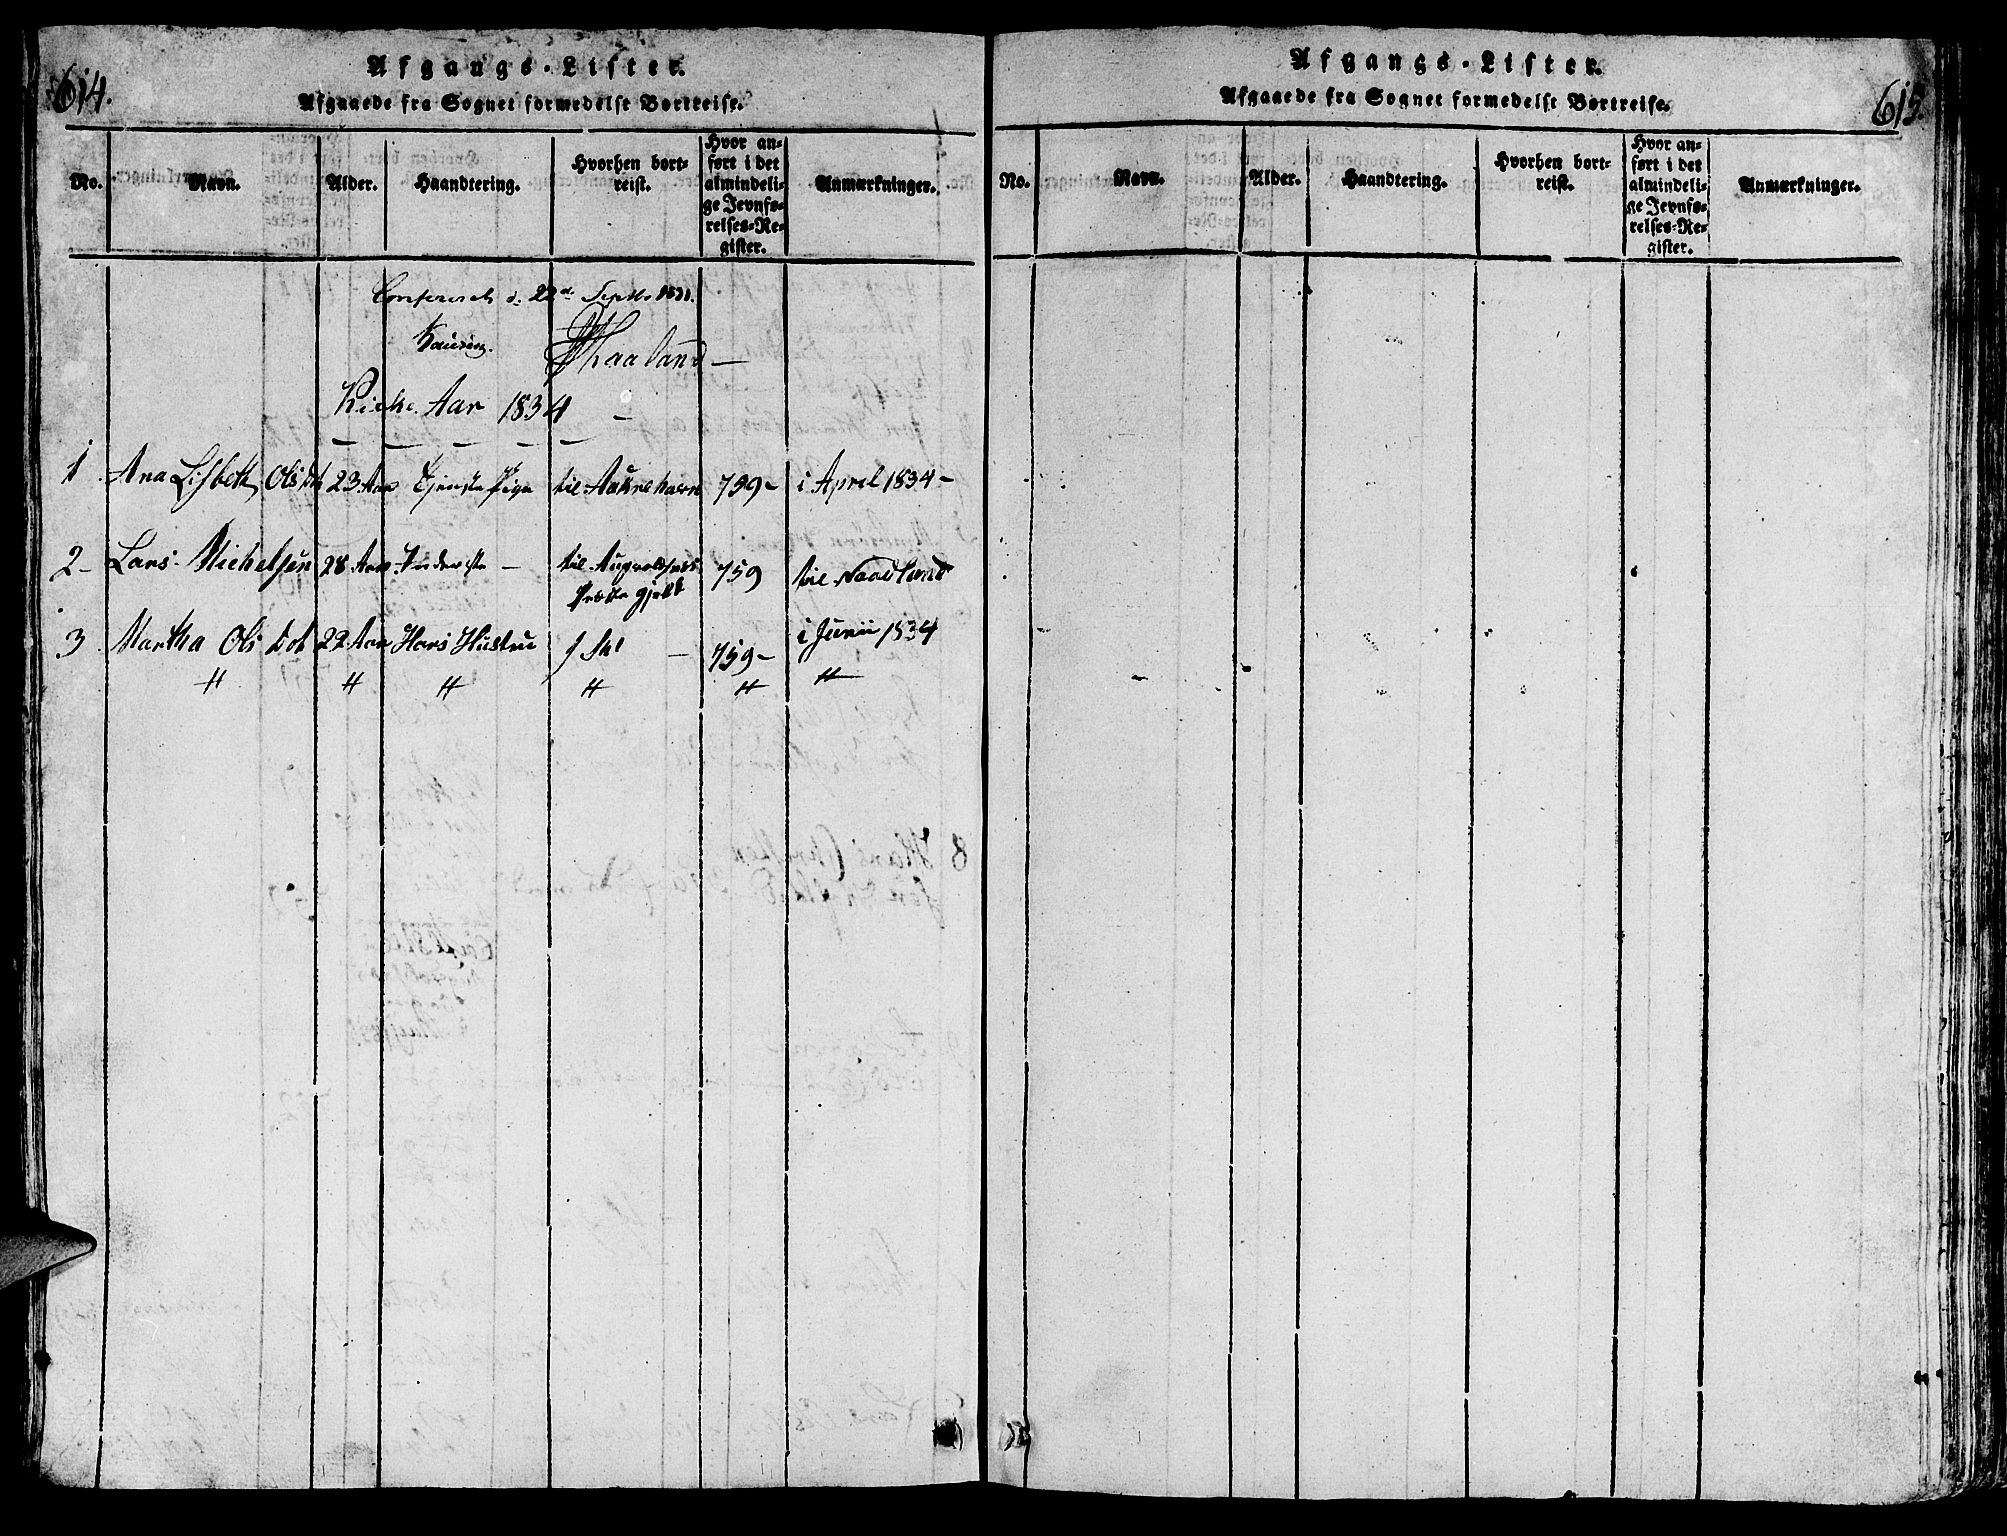 614.
Afgangs-Lister.
Afgaaede fra Sognet formedelst Bortreise.
No. Navn. Alder. Haandtering. Hvorhen bort-
reist. Hvor an-
ført i det
almindeli-
ge Jevnfø-
relses-Re-
gister. Anmærkninger.
d. 22de Septbr 1831.
Haaland
Kirke Aar 1834
1 Ana Lisbeth Olsdtr 23 Aar Tjeneste Pige til 759 - i April 1834 -
2 - Lars Michelsen 28 Aar Inderste - til
Præstegjeld 759 til
3 Martha Olsdot 22 Aar Hans Hustru - 759 - i Junii 1834
" " " " " "
615.
Afgangs-Lister.
Afgaaede fra Sognet formedelst Bortreise.
No. Navn. Alder. Haandtering. Hvorhen bort-
reist. Hvor an-
ført i det
almindeli-
ge Jevnfø-
relses-Re-
gister. Anmærkninger.